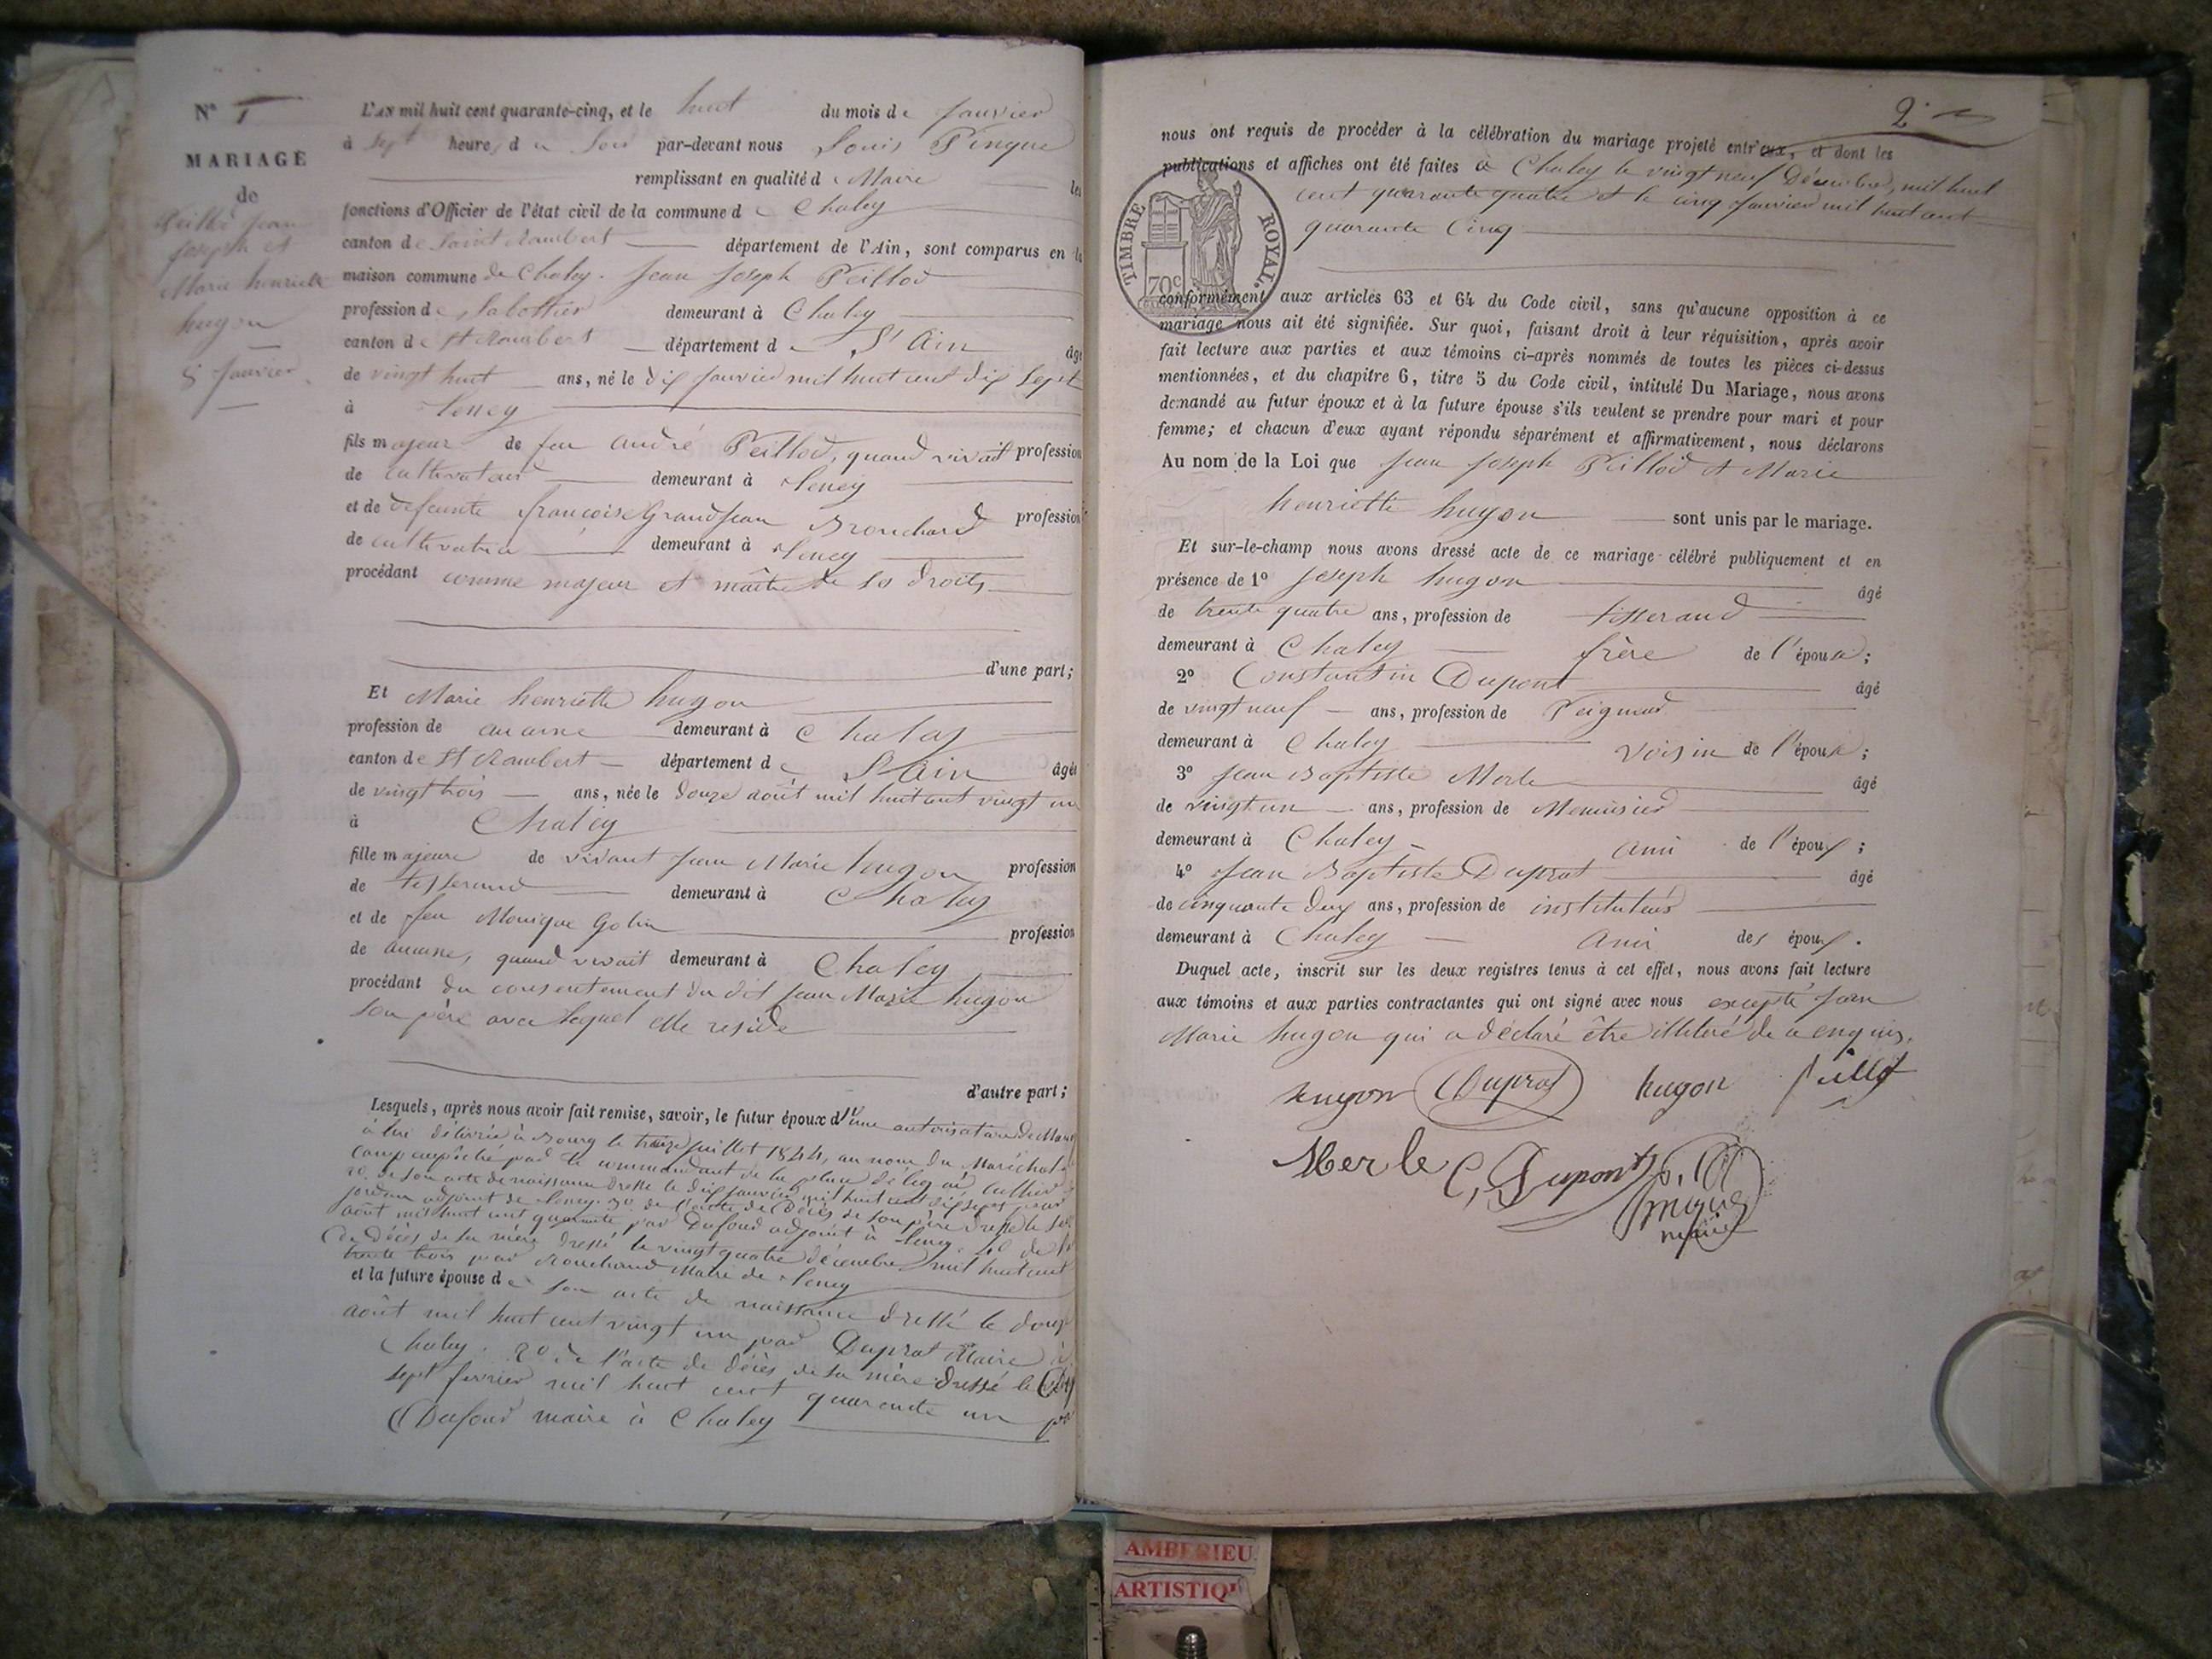 N° 1
MARIAGE
de
Peillod Jean
Joseph et
Marie henriette
hugon
8 Janvier
L'AN mil huit cent quarante-cinq, et le huit du mois de Janvier
à sept heures du Soir par-devant nous Louis Pingue
remplissant en qualité de Maire les
fonctions d'Officier de l'état civil de la commune de Chaley
canton de Saint Rambert département de l'Ain, sont comparus en la
maison commune de Chaley. Jean Joseph Peillod
profession de Sabottier demeurant à Chaley
canton de St Rambert département de L'Ain âgé
de vingt huit ans, né le dix Janvier mil huit cent dix Sept
à Teney
fils majeur de feu André Peillod, quand vivait profession
de cultivateur demeurant à Teney
et de défunte françoise Grandjean Brouchard profession
de cultivatrice demeurant à Teney
procédant comme majeur et maître de ses droits
d'une part;
Et Marie henriette hugon
profession de aucune demeurant à Chaley
canton de St Rambert département de L'Ain âgée
de vingt trois ans, née le douze août mil huit cent vingt un
à Chaley
fille majeure de vivant Jean Marie hugon profession
de tisserand demeurant à Chaley
et de feu Monique Golin profession
de aucune, quand vivait demeurant à Chaley
procédant du consentement du dit Jean Marie hugon
son père avec lequel elle reside
d'autre part;
Lesquels, après nous avoir fait remise, savoir, le futur époux d'une autorisation de
à lui délivrée à Bourg le treize Juillet 1844, au nom du Maréchal de
camp empêché par le commandant de la place
2o. de son acte de naissance dressé le dix Janvier mil huit cent dix sept par
Jordan adjoint de Teney. 3o. de l'acte de Décès de son père dressé le
août mil huit cent quarante par Dufour adjoint à Teney. 4o de
de Décès de sa mère dressé le vingt quatre décembre mil huit cent
trente trois par Maire de Teney
et la future épouse de son acte de naissance dressé le douze
août mil huit cent vingt un par Duprat Maire à
Chaley. 2o de l'acte de décès de sa mère dressé le
sept fevrier mil huit cent quarante un par
Dufour maire à Chaley
2
nous ont requis de procéder à la célébration du mariage projeté entr'eux, et dont les
publications et affiches ont été faites à Chaley le vingt neuf Décembre, mil huit
cent quarante quatre et le cinq Janvier mil huit cent
quarante Cinq
TIMBRE ROYAL
70c
conformément aux articles 63 et 64 du Code civil, sans qu'aucune opposition à ce
mariage nous ait été signifiée. Sur quoi, faisant droit à leur réquisition, après avoir
fait lecture aux parties et aux témoins ci-après nommés de toutes les pièces ci-dessus
mentionnées, et du chapitre 6, titre 5 du Code civil, intitulé Du Mariage, nous avons
demandé au futur époux et à la future épouse s'ils veulent se prendre pour mari et pour
femme; et chacun d'eux ayant répondu séparément et affirmativement, nous déclarons
Au nom de la Loi que Jean Joseph Peillod et Marie
henriette hugon sont unis par le mariage.
Et sur-le-champ nous avons dressé acte de ce mariage célébré publiquement et en
présence de 1° Joseph hugon âgé
de trente quatre ans, profession de tisserand
demeurant à Chaley frère de l'épouse;
2° Constantin Dupont âgé
de vingt neuf ans, profession de Peigneur
demeurant à Chaley voisin de l'épouse;
3° Jean Baptiste Merle âgé
de vingt un ans, profession de Menuisier
demeurant à Chaley ami de l'époux;
4° Jean Baptiste Duprat âgé
de cinquante deux ans, profession de instituteur
demeurant à Chaley ami des époux.
Duquel acte, inscrit sur les deux registres tenus à cet effet, nous avons fait lecture
aux témoins et aux parties contractantes qui ont signé avec nous excepté Jean
Marie hugon qui a déclaré être illitéré de a enquis.
hugon Duprat hugon Peillod
Merle C, Dupont
maire
AMBERIEU
ARTISTIQU